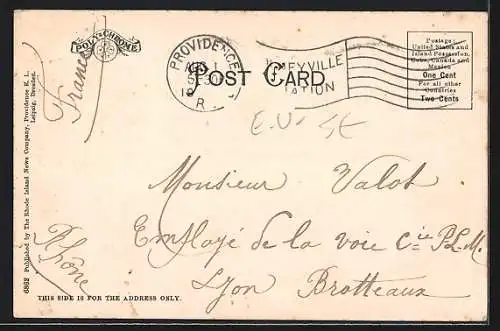 POLYCHROME
France
PROVIDENCE
R
OLNEYVILLE
STATION
POST CARD
Postage:
United States and
Island Possessions,
Cuba, Canada and
Mexico
One Cent
For all other
Countries
Two Cents
Monsieur Valot
Employé de la voie Cie P.L.M.
Lyon Brotteaux
Rhône
THIS SIDE IS FOR THE ADDRESS ONLY.
6862 Published by The Rhode Island News Company, Providence R. I., Leipzig, Dresden.